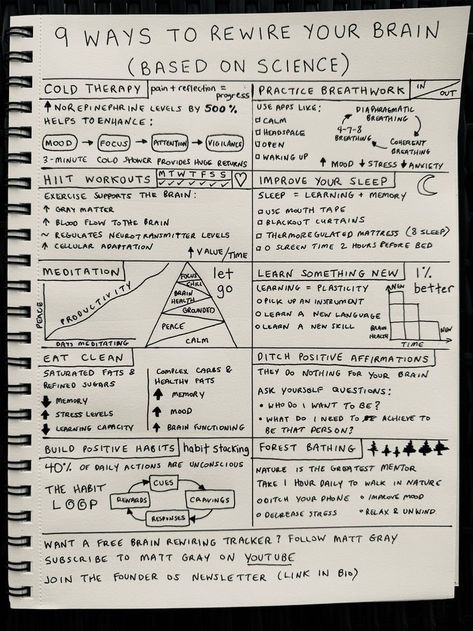 9 WAYS TO REWIRE YOUR BRAIN
(BASED ON SCIENCE)
COLD THERAPY
pain + reflection =
progress
↑ NOREPINEPHRINE LEVELS BY 500%
HELPS TO ENHANCE:
MOOD → FOCUS → ATTENTION → VIGILANCE
3-MINUTE COLD SHOWER PROVIDES HUGE RETURNS
PRACTICE BREATHWORK
IN / OUT
USE APPS LIKE:
□ CALM
□ HEADSPACE
□ OPEN
□ WAKING UP
DIAPHRAGMATIC
BREATHING
4-7-8
BREATHING
COHERENT
BREATHING
↑ MOOD ↓ STRESS ↓ ANXIETY
HIIT WORKOUTS
M T W T F S S
✓ ✓ ✓ ✓ ✓ ✓ ✓
EXERCISE SUPPORTS THE BRAIN:
↑ GRAY MATTER
↑ BLOOD FLOW TO THE BRAIN
~ REGULATES NEUROTRANSMITTER LEVELS
↑ CELLULAR ADAPTATION
IMPROVE YOUR SLEEP
SLEEP = LEARNING + MEMORY
□ USE MOUTH TAPE
□ BLACKOUT CURTAINS
□ THERMOREGULATED MATTRESS (8 SLEEP)
□ 0 SCREEN TIME 2 HOURS BEFORE BED
MEDITATION
PEACE
PRODUCTIVITY
DAYS MEDITATING
↑ VALUE/TIME
let
go
FOCUS
BRAIN
HEALTH
GROUNDED
PEACE
CALM
LEARN SOMETHING NEW
1%
better
LEARNING = PLASTICITY
○ PICK UP AN INSTRUMENT
○ LEARN A NEW LANGUAGE
○ LEARN A NEW SKILL
NEW
NEW
BRAIN
HEALTH
TIME
EAT CLEAN
SATURATED FATS &
REFINED SUGARS
↓ MEMORY
↑ STRESS LEVELS
↓ LEARNING CAPACITY
COMPLEX CARBS &
HEALTHY FATS
↑ MEMORY
↑ MOOD
↑ BRAIN FUNCTIONING
DITCH POSITIVE AFFIRMATIONS
THEY DO NOTHING FOR YOUR BRAIN
ASK YOURSELF QUESTIONS:
• WHO DO I WANT TO BE?
• WHAT DO I NEED TO ACHIEVE TO
BE THAT PERSON?
BUILD POSITIVE HABITS
habit stacking
40% OF DAILY ACTIONS ARE UNCONSCIOUS
THE HABIT
LOOP
CUES
REWARDS
CRAVINGS
RESPONSES
FOREST BATHING
NATURE IS THE GREATEST MENTOR
TAKE 1 HOUR DAILY TO WALK IN NATURE
○ DITCH YOUR PHONE ○ IMPROVE MOOD
○ DECREASE STRESS ○ RELAX & UNWIND
WANT A FREE BRAIN REWIRING TRACKER? FOLLOW MATT GRAY
SUBSCRIBE TO MATT GRAY ON YOUTUBE
JOIN THE FOUNDER OS NEWSLETTER (LINK IN BIO)